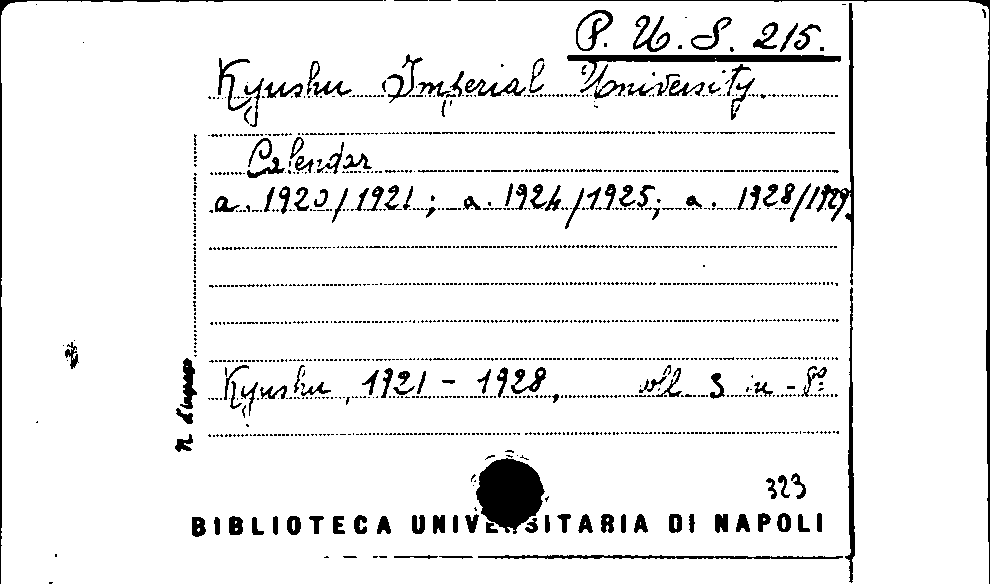 P. U. S. 215.
Kyushu Imperial University.
Calendar
a. 1920/1921; a. 1924/1925; a. 1928/1929.
Kyushu, 1921 - 1928, voll. 3 in - 8º
N. d'ingresso
323
BIBLIOTECA UNIVERSITARIA DI NAPOLI